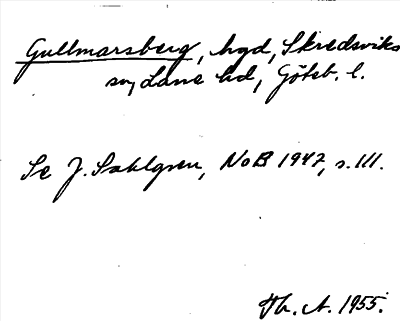 Gullmarsberg, hgd, Skredsviks
sn, Lane hd, Göteb. l.
Se J. Sahlgren, NoB 1947, s. 111.
Th. A. 1955.